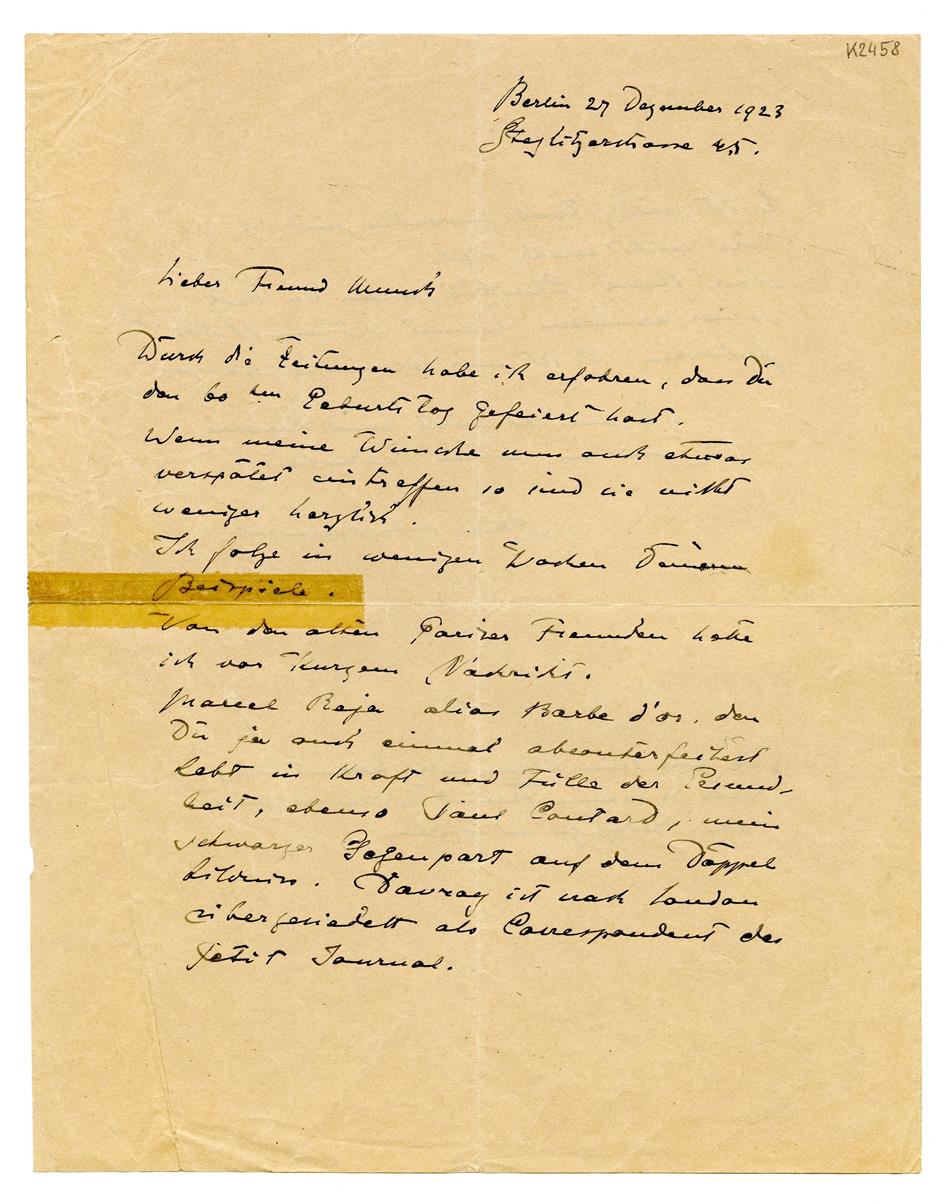 K2458
Berlin 27 Dezember 1923
Steglitzerstrasse 45.
Lieber Freund Munch
Durch die Zeitungen habe ich erfahren, dass Du
den 60 ten Geburtstag gefeiert hast.
Wenn meine Wünsche nun auch etwas
verspätet eintreffen so sind sie nicht
weniger herzlich.
Ich folge in wenigen Wochen Deinem
Beispiele.
Von den alten Pariser Freunden hatte
ich vor Kurzem Nachricht.
Marcel Baja alias Barbe d'or, den
Du ja auch einmal abconterfeitest
lebt in Kraft und Fülle der Gesund-
heit, ebenso Paul Contard, mein
schwarzer Gegenpart auf dem Doppel
bildniss. Davray ist nach London
übergesiedelt als Correspondent des
Petit Journal.